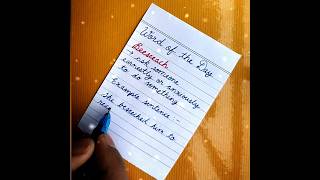 Word of the Day
Beseech
→ ask someone
earnestly or anxiously
to do something
Example sentence :-
She beseeched him to